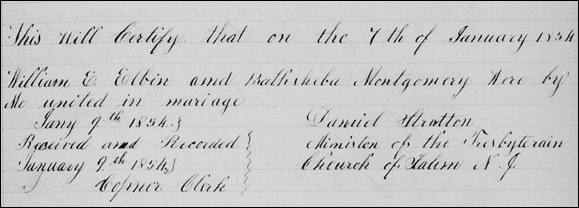 This Will Certify that on the 7th of January 1854
William E. Elbin and Bathsheba Montgomery Were by
Me united in mariage
Jany 9th 1854
Daniel Stratton
Received and Recorded
Ministon of the Presbyterain
January 9th 1854
Church of Salem N. J.
Clerk